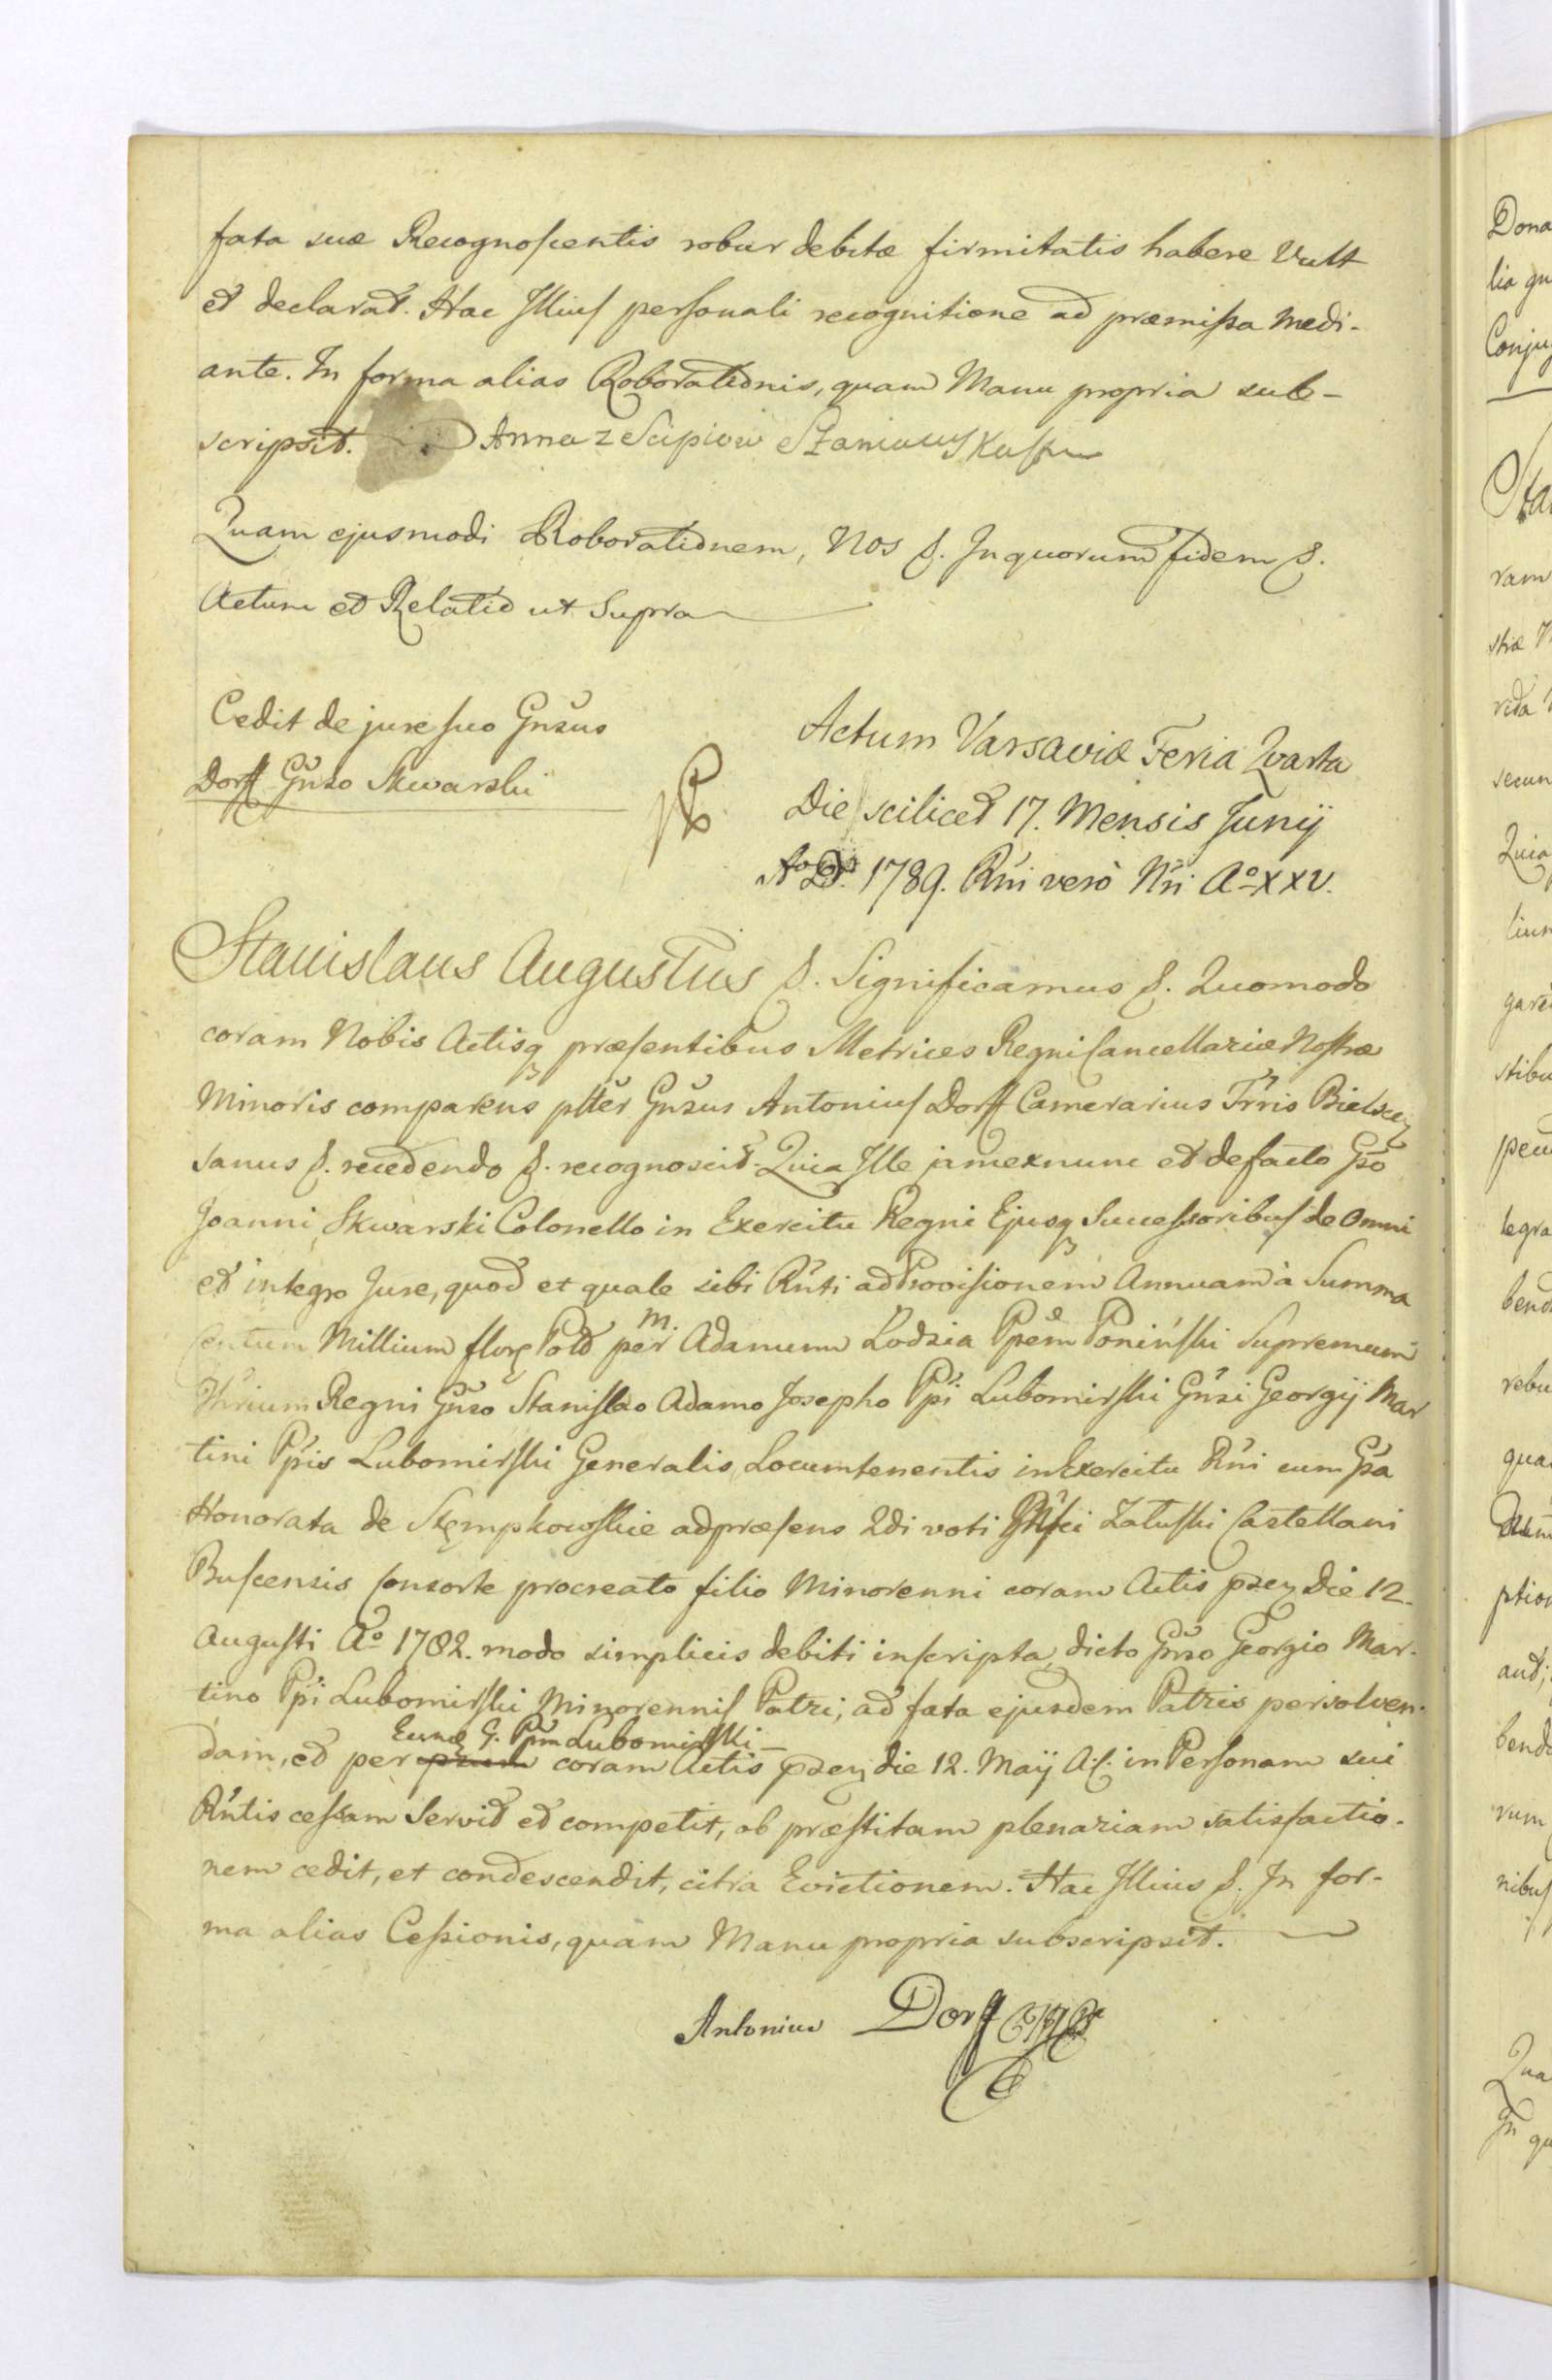 fata suæ Recognoscentis robur debitæ firmitatis habere Vult
et declarat. Hac Illius personali recognitione ad præmissa Medi-
ante. In forma alias Roborationis, quam Manu propria sub-
scripsit. Anna z Scipiow
Quam ejusmodi Roborationem, Nos &. In quorum fidem &.
Actum et Relatio ut Supra
Cedit de jure suo Gnsus
Dorff Gnso Skwarski
Actum Varsaviæ Feria Qvarta
Die scilicet 17. Mensis Junij
Ao D. 1789. Rni vero Nri Ao XXV.
Stanislaus Augustus &. Significamus &. Quomodo
coram Nobis Actisq præsentibus Metrices Regni Cancellariæ Nostræ
Minoris comparens plter Gnsus Antonius Dorff Camerarius Trris Bielscen
sanus &. recedendo &. recognoscit. Quia Ille jam ex nunc et de facto Gso
Joanni Skwarski Colonello in Exercitu Regni Ejusq Successoribus de Omni
et integro Jure, quod et quale sibi Rnti ad Provisionem Annuam à Summa
Centum Millium flor Pold per M. Adamum Lodzia Ppem Poniński Supremum
Thrium Regni Gnso Stanislao Adamo Josepho Ppi Lubomirski Gnsi Georgij Mar
tini Ppis Lubomirski Generalis Locumtenentis in Exercitu Rni cum Gsa
Honorata de Stempkowskie ad præsens 2di voti Załuski Castellani
Buscensis Consorte procreato filio Minorenni coram Actis psen Die 12.
Augusti Ao 1782. modo simplicis debiti inscripta, dicto Gnso Georgio Mar-
tino Ppi Lubomirski Minorennis Patri, ad fata ejusdem Patris persolven-
Eund G. Ppm Lubomirski
dam, et per coram Actis psen die 12. Maij A.C. in Personam sui
Rntis cessam Servit et competit, ob præstitam plenariam satisfactio-
nem cedit, et condescendit, citra Evictionem. Hac Illius &. In for-
ma alias Cessionis, quam Manu propria subscripsit.
Antonius Dorff